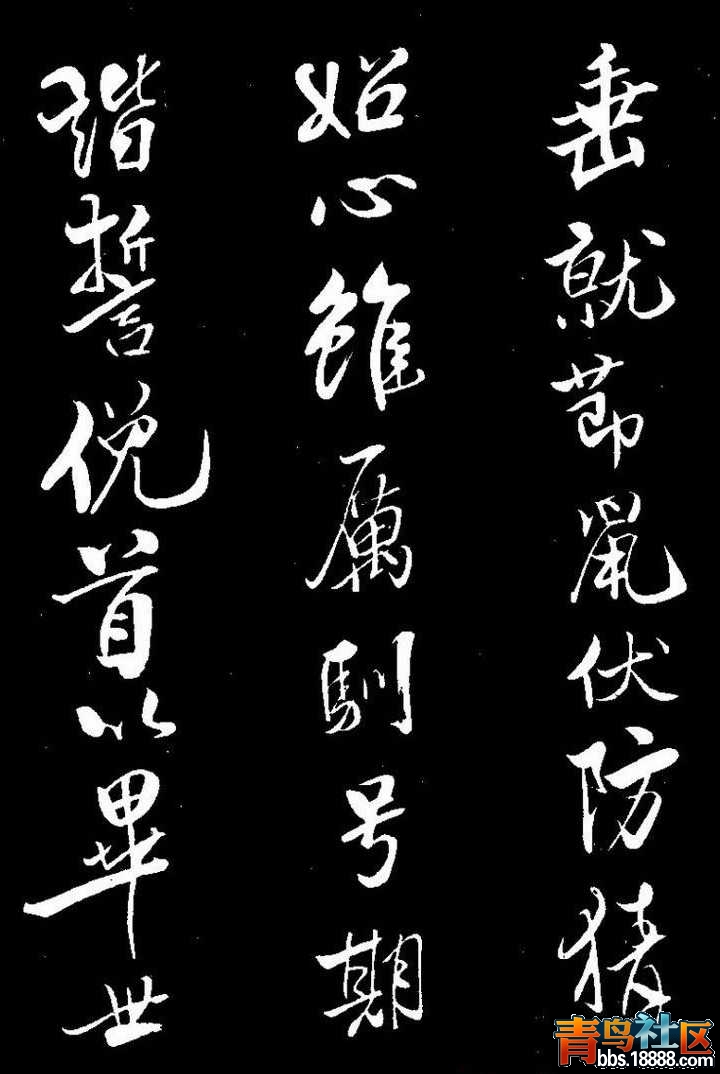 垂就莭鼠伏防猜
妬心雖厲馴号期
諧誓俛首以畢世
青鸟社区
bbs.18888.com